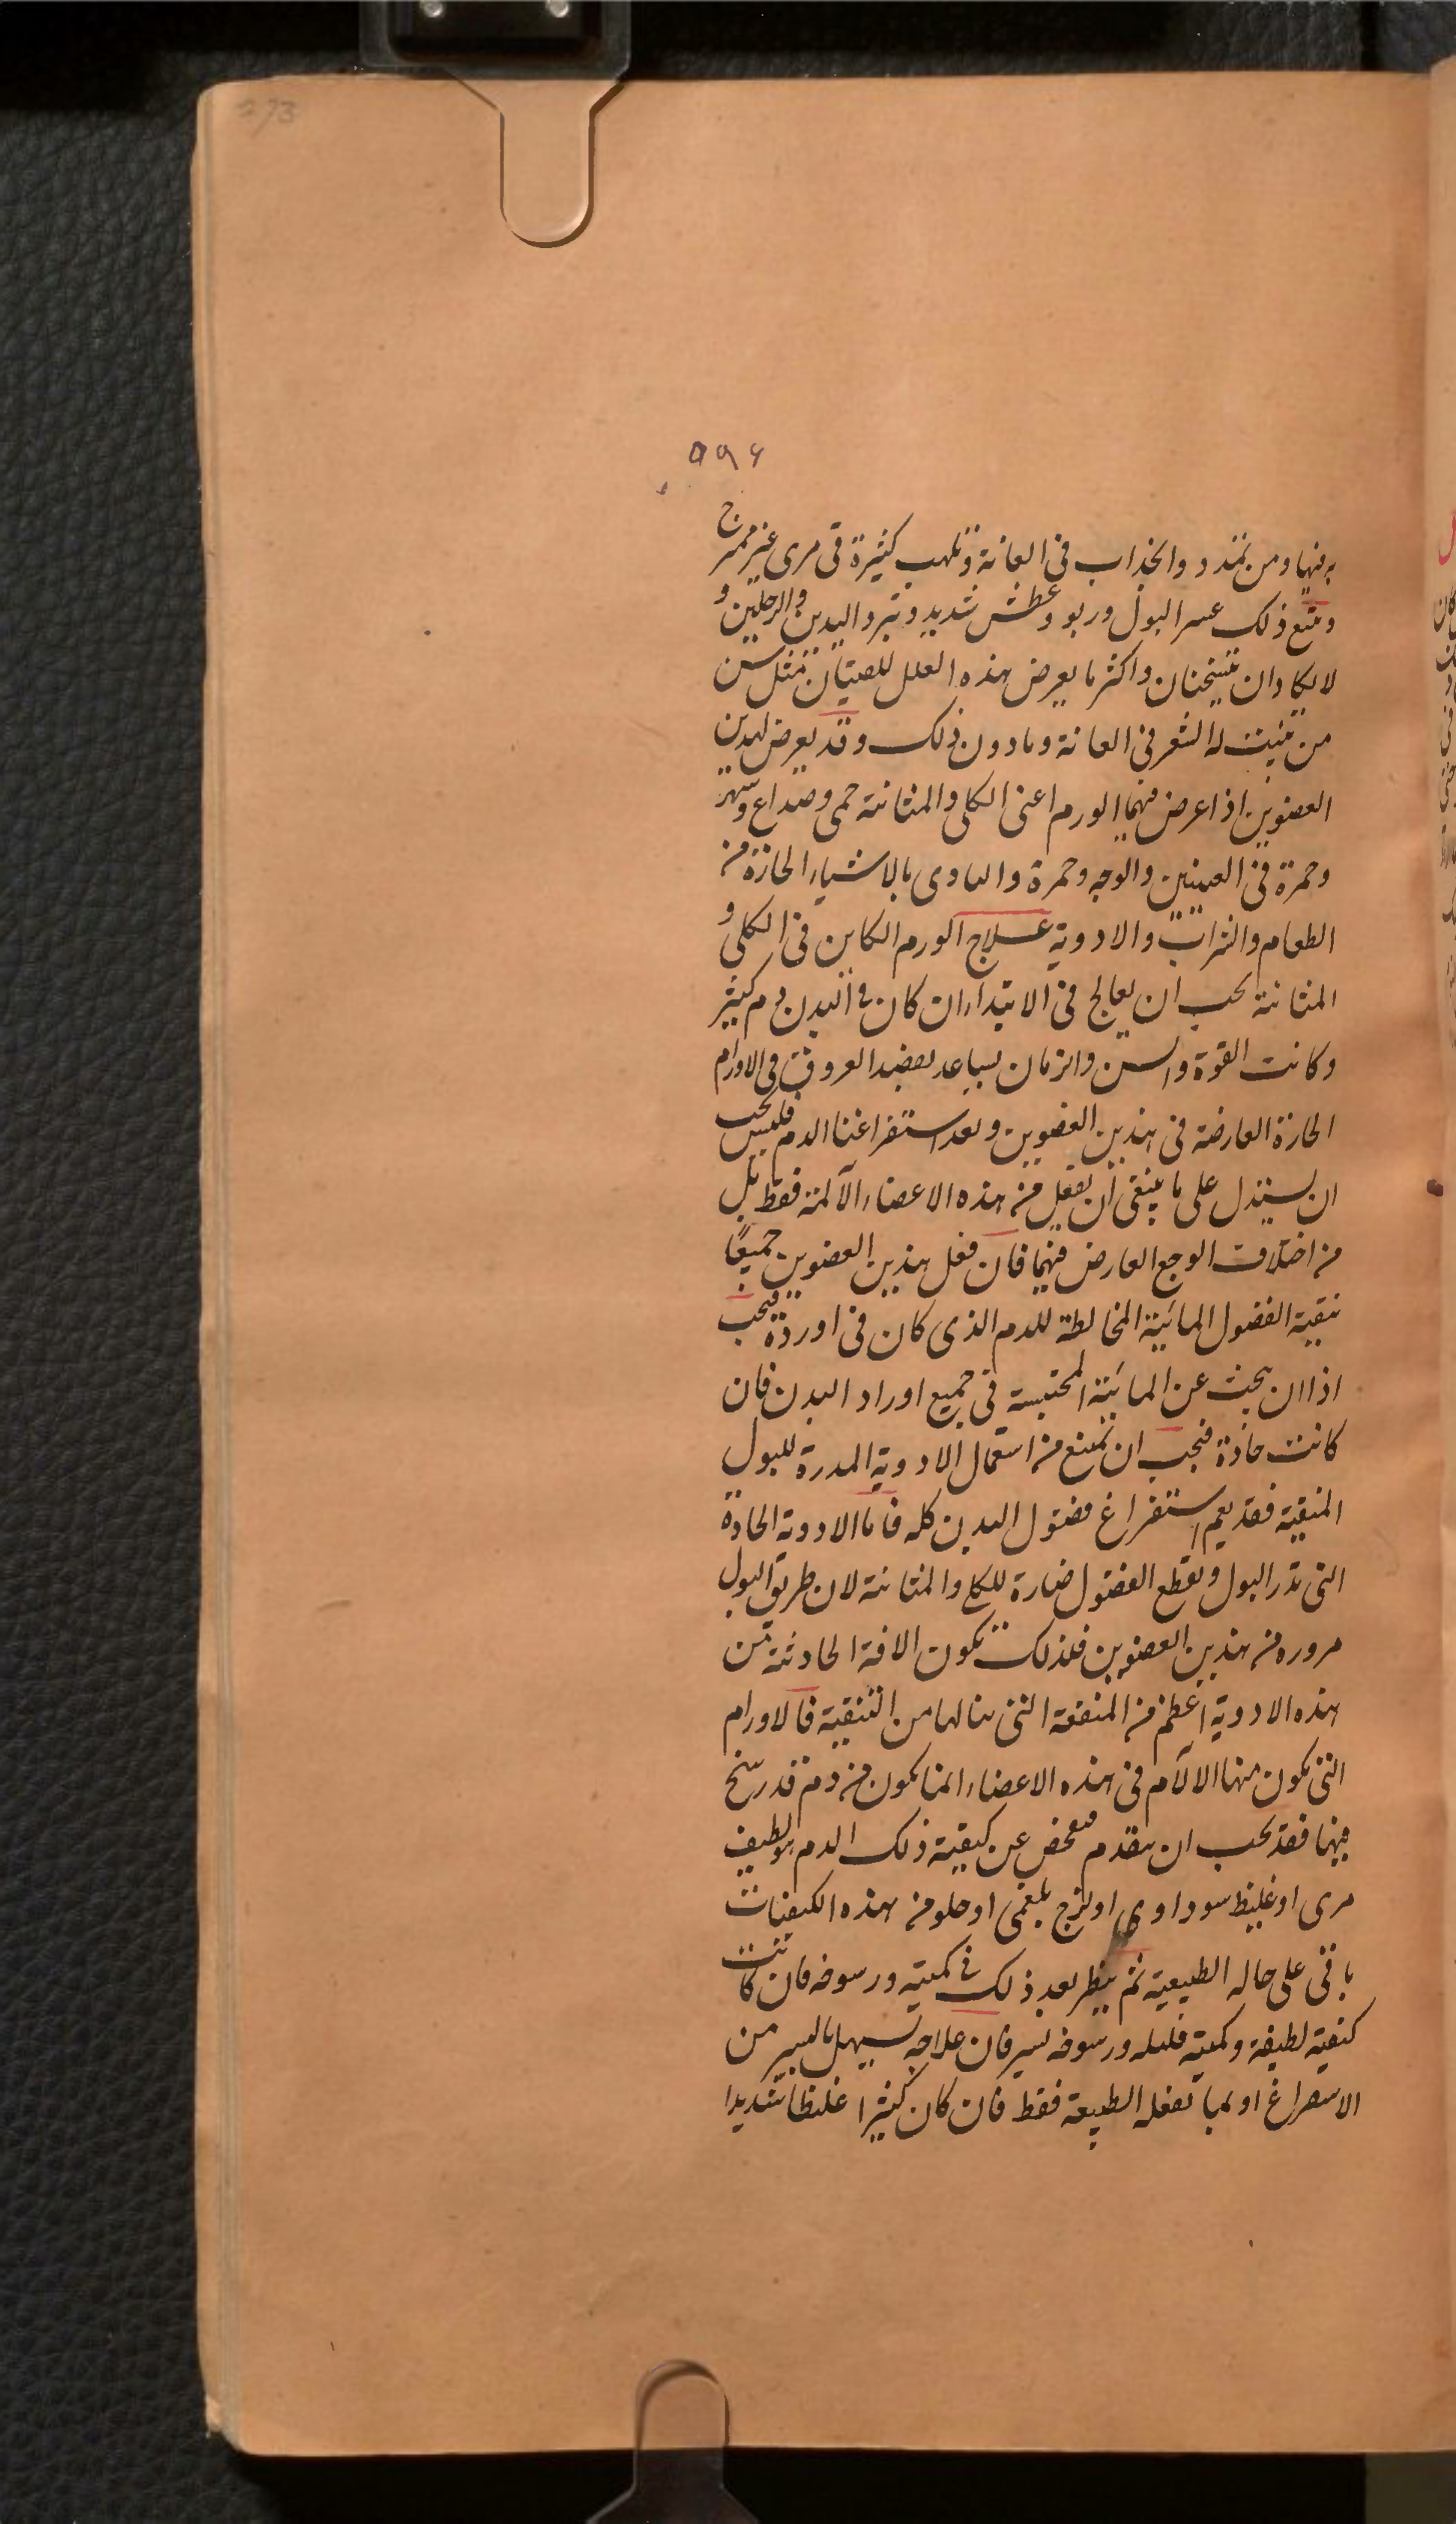 273
۵۹۶
فيها ومن تمدد وانجذاب فى العانة وتلهب كثيرة قى مرى غير ممزج
ويتبع ذلك عسر البول وربو وعطش شديد وتبرد اليدين والرجلين و
لا يكادان تسخنان واكثر ما يعرض هذه العلل للصبيان مثل سن
من تنبت له الشعر فى العانة وما دون ذلك وقد يعرض لهذين
العضوين اذا عرض فيهما الورم اعنى الكلى والمثانة حمى وصداع وسهر
وحمرة فى العينين والوجه وحمرة والتاذى بالاشياء الحارة من
الطعام والشراب والادوية علاج الورم الكاين فى الكلى و
المثانة يجب ان يعالج فى الابتداء ان كان فى البدن دم كثير
وكانت القوة والسن والزمان يساعد بفصد العروق فى الاورام
الحارة العارضة فى هذين العضوين وبعد استفراغنا الدم فليس يجب
ان يستدل على ما ينبغى ان يفعل من هذه الاعضاء الآلمة فقط بل
من اختلاف الوجع العارض فيهما فان فعل هذين العضوين جميعًا
تنقية الفضول المائية المخالطة للدم الذى كان فى اوردة فيجب
اذا ان يبحث عن المائية المحتبسة فى جميع اوراد البدن فان
كانت حادة فيجب ان تمنع من استعمال الادوية المدرة للبول
المنقية فقد يعم استفراغ فضول البدن كله فاما الادوية الحادة
التى تدر البول وتقطع الفضول ضارة للكلى والمثانة لان طريق البول
مروره من هذين العضوين فلذلك تكون الافة الحادثة من
هذه الادوية اعظم من المنفعة التى ينالها من التنقية فالاورام
التى تكون منها الالام فى هذه الاعضاء انما يكون من دم قد رسخ
فيها فقد يجب ان يتقدم فيفحص عن كيفية ذلك الدم هو لطيف
مرى او غليظ سوداوى او لزج بلغمى او حلو من هذه الكيفيات
باقى على حاله الطبيعية ثم ينظر بعد ذلك فى كميته ورسوخه فان كانت
كيفيته لطيفة وكميته قليله ورسوخه يسير فان علاجه يسهل باليسير من
الاستفراغ او بما تفعله الطبيعة فقط فان كان كثيرا غليظا شديدا